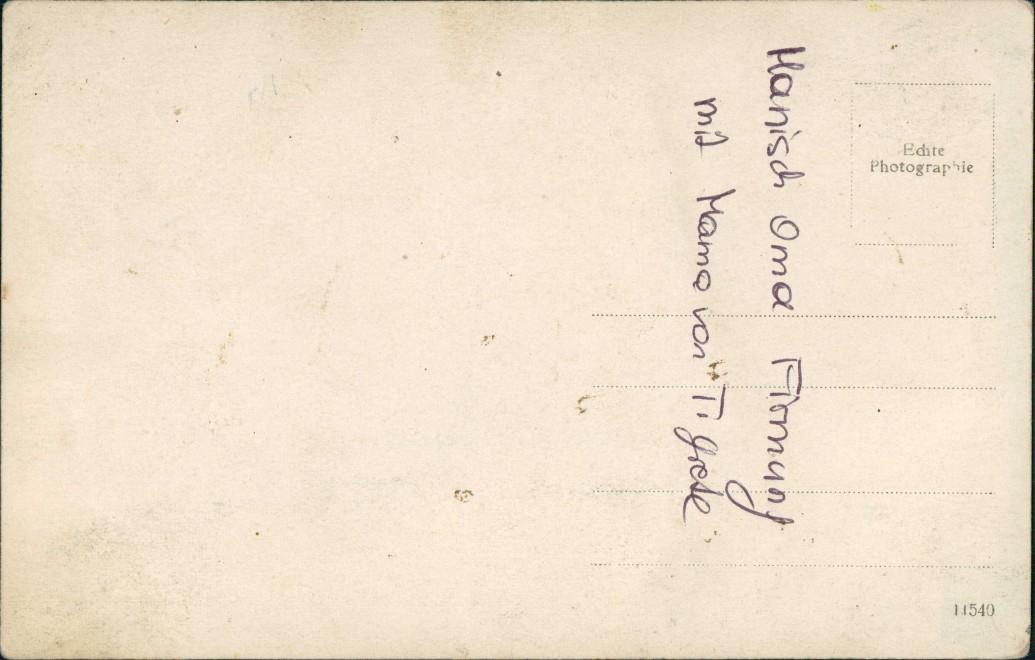 Hanisch Oma Firmung
mit Mama von Ti Grete
Echte
Photographie
11540